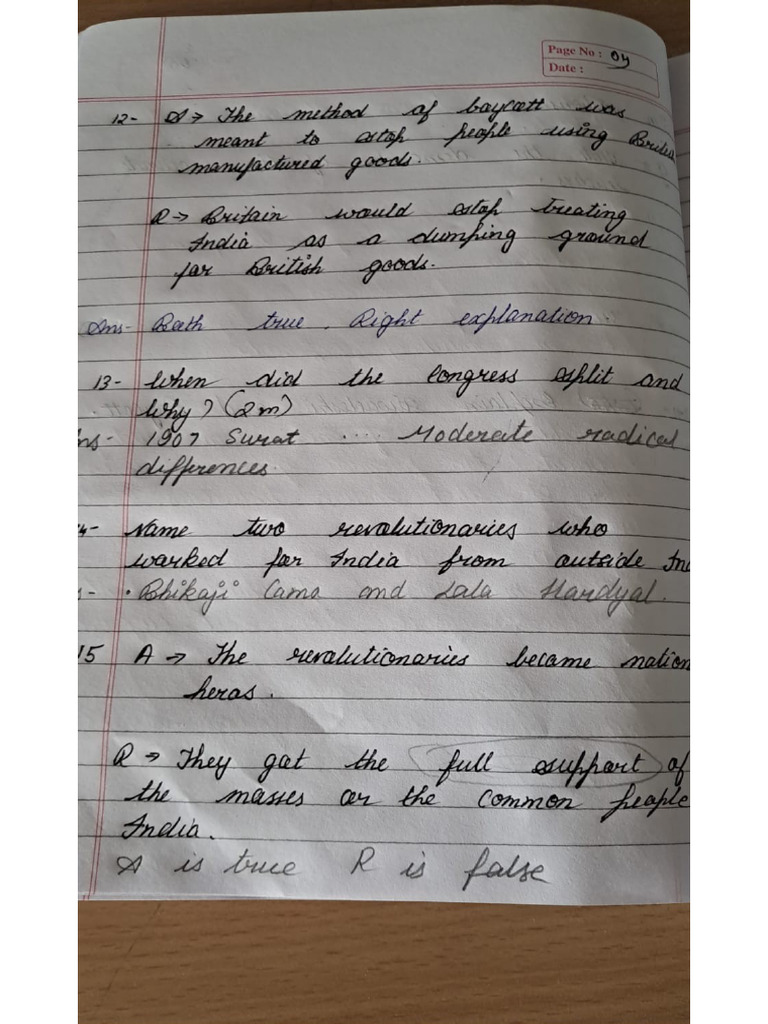 Page No : 04
Date :
12- A → The method of boycott was
meant to stop people using
manufactured goods.
R → Britain would stop treating
India as a dumping ground
for British goods.
Ans- Both true. Right explanation.
13- When did the Congress split and
Why? (2m)
ns- 1907 Surat .... Moderate radical
differences.
4- Name two revolutionaries who
worked for India from outside In
- • Bhikaji Cama and Lala Hardyal.
15 A → The revolutionaries became nation
heros.
R → They got the full support of
the masses or the common people
India.
A is true R is false